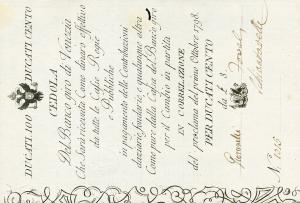 DUCATI 100 DUCATI CENTO
CEDOLA
Del Banco giro di Venezia
Che sarà ricevuta Come dinaro effettivo
da tutte le Casse Regie
e Pubbliche
in pagamento delle Contribuzioni
dazj, aggravj fondiarj, e qualunque altra
Come pure dalla Cassa del Banco giro
per il Cambio in partita
IN CORRELAZIONE
del proclama del primo Ottobre 1798.
PER DUCATI CENTO
da £ 8
N.º